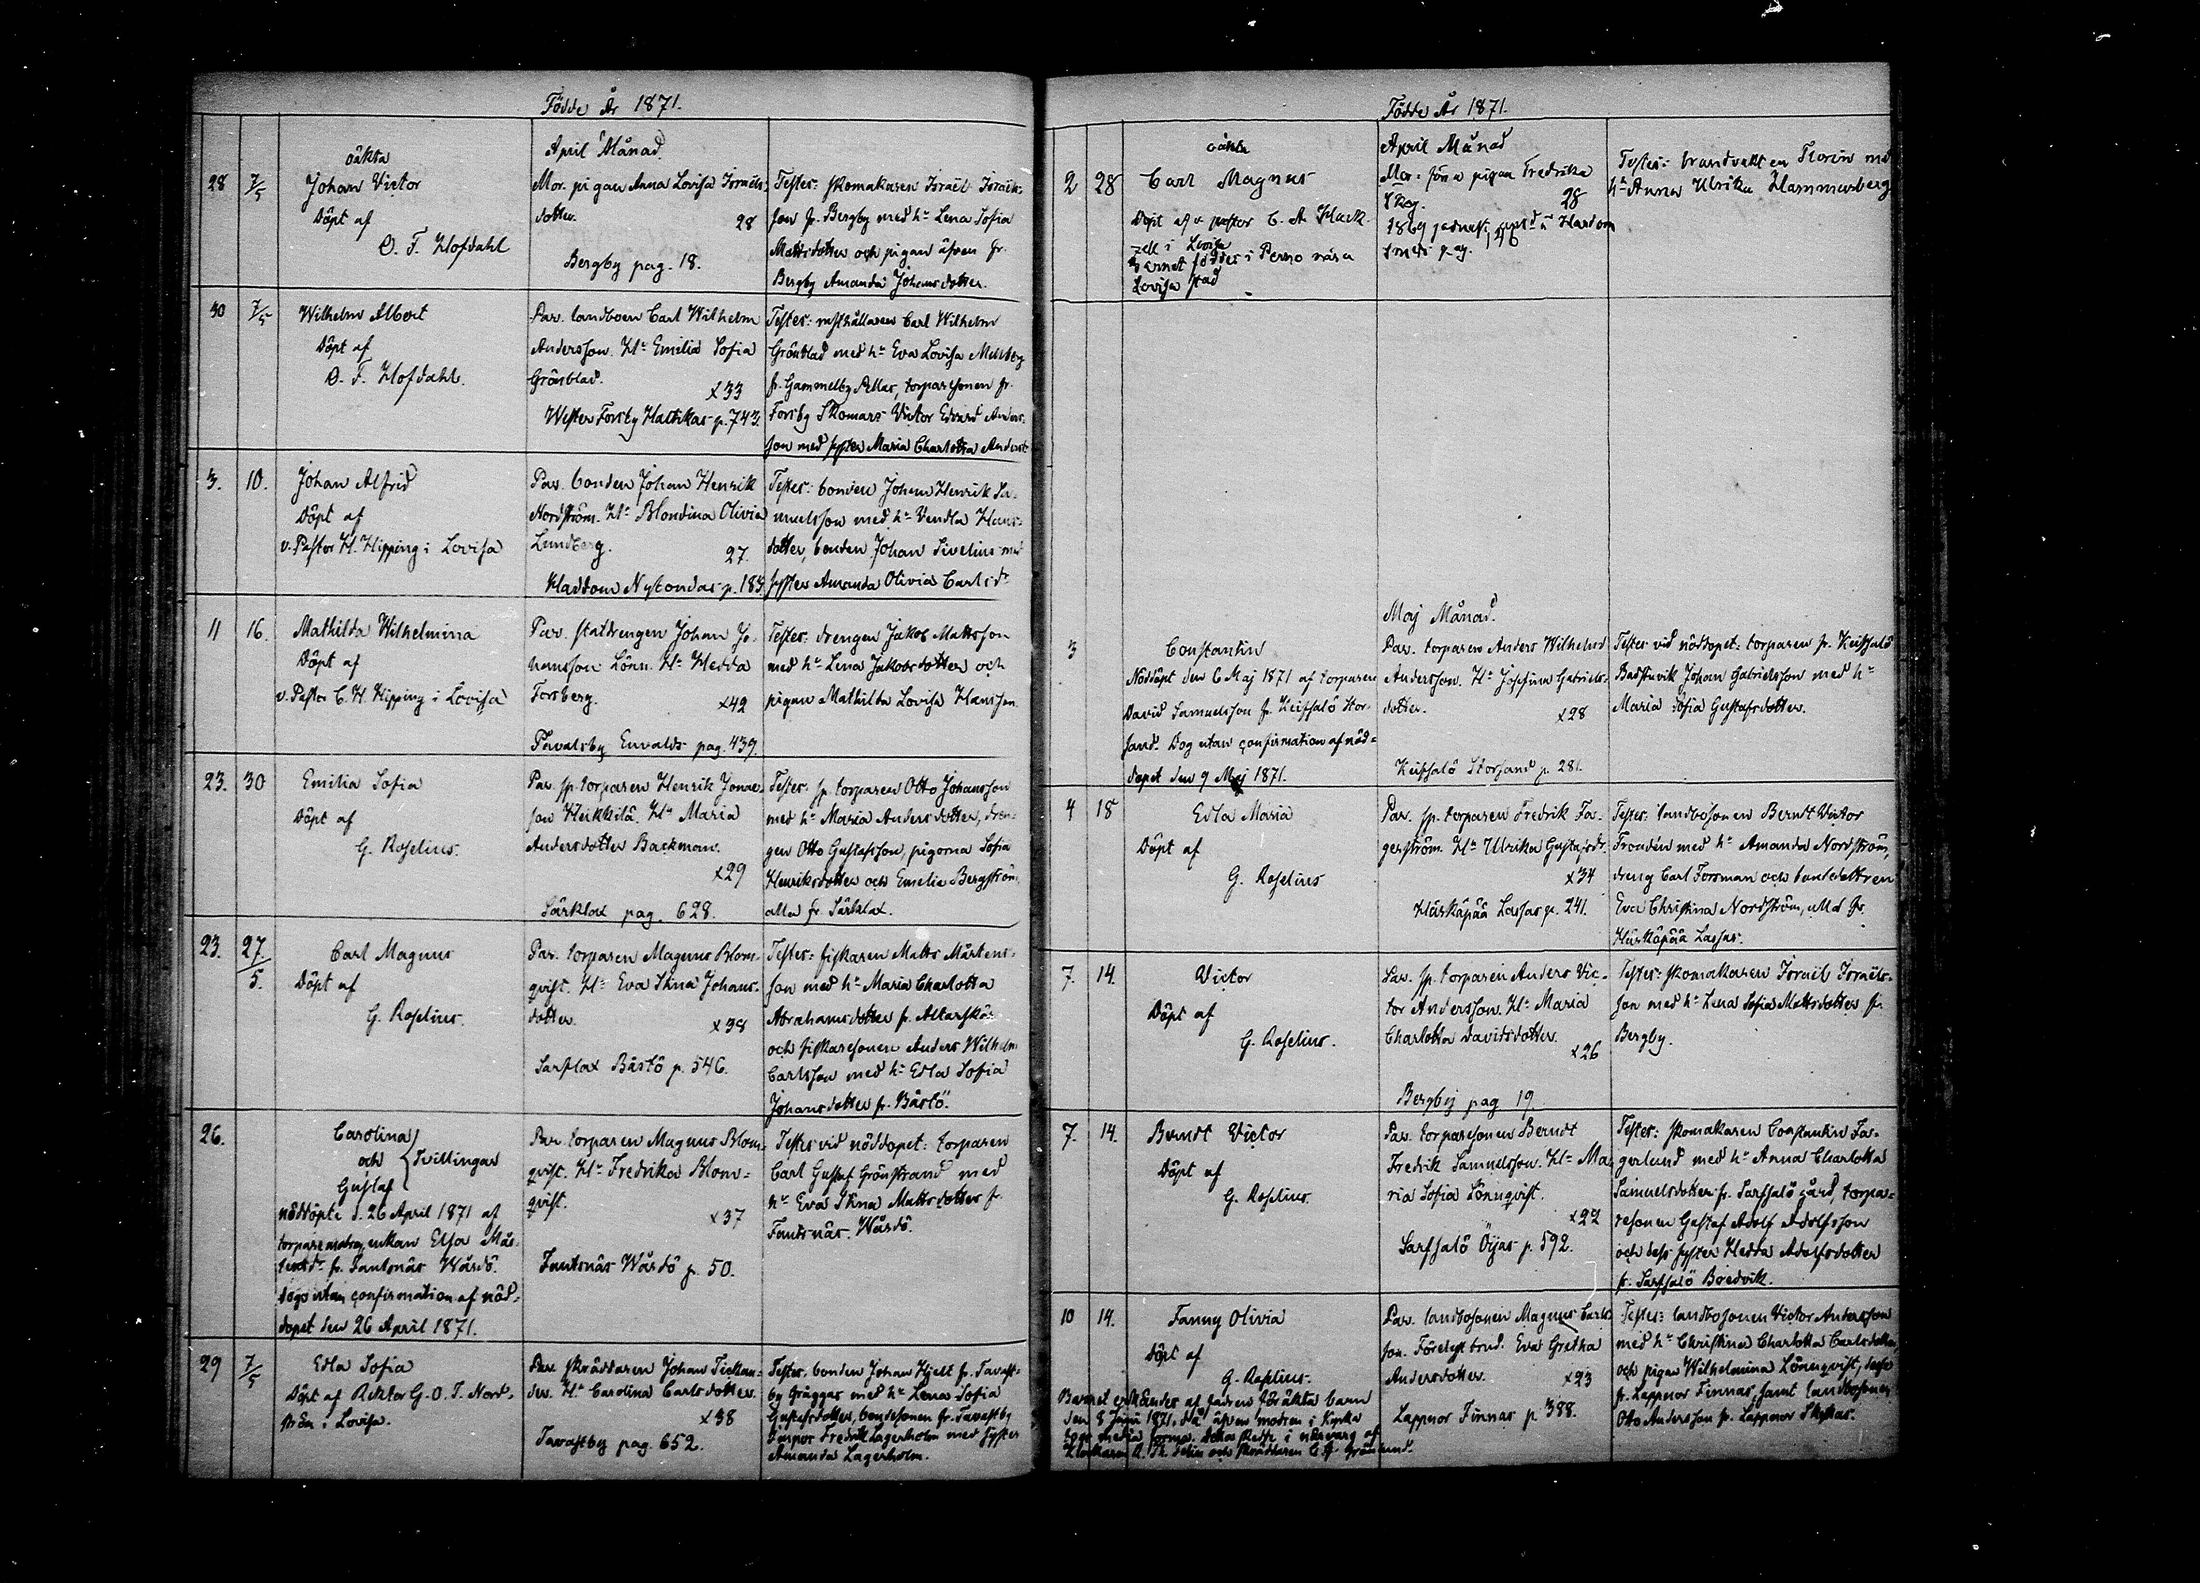 Födde År 1871.
April Månad.
28 7/5
oäkta
Johan Victor
Döpt af
O. F. Hofdahl
Mor. pigan Anna Lovisa Israels-
dotter. 28
Bergby pag. 18.
Tester: skomakaren Israël Israëls-
son fr. Bergby med hu Lena Sofia
Mattsdotter och pigan äfven fr.
Bergby Amanda Johansdotter.
30 7/5
Wilhelm Albert
Döpt af
O. F. Hofdahl.
Par. landboen Carl Wilhelm
Andersson. Hu Emilia Sofia
Grönblad. x33
Wester Forsby Hattikas p. 743.
Tester: rusthållaren Carl Wilhelm
Grönblad med hu Eva Lovisa
fr. Gammelby torparesonen fr.
Forsby Skomars Victor Edvard Anders-
son med syster Maria Charlotta Andersd.
3. 10.
Johan Alfrid
Döpt af
v. Pastor H. Hipping i Lovisa
Par. bonden Johan Henrik
Nordström. Hu Blondina Olivia
Lundberg. 27.
Haddom Nybondas p. 183.
Tester: bonden Johan Henrik Sa-
muelsson med hu Vendla Hans-
dotter, bonden Johan Sivelius med
syster Amanda Olivia Carlsdr
11 16.
Mathilda Wilhelmina
Döpt af
v. Pastor C. H. Hipping i Lovisa
Par. statdrengen Johan Jo-
hansson Lönn. Hu Hedda
Forsberg. x42
Tavalsby Envalds pag. 439.
Tester: drengen Jakob Mattsson
med hu Lena Jakobsdotter och
pigan Mathilda Lovisa Hansson.
23. 30
Emilia Sofia
Döpt af
G. Roselius.
Par. sp. torparen Henrik Jonas-
son Heikkilä. Hu Maria
Andersdotter Backman.
x29
Särklax pag. 628.
Tester: sp. torparen Otto Johansson
med hu Maria Andersdotter, dren-
gen Otto Gustafsson, pigorna Sofia
Henriksdotter och Emelie Bergström,
alla fr. Särklax.
23. 27/5.
Carl Magnus
Döpt af
G. Roselius.
Par. torparen Magnus Blom-
qvist. Hu Eva Stina Johans-
dotter. x38
Sarflax Båstö p. 546.
Tester: fiskaren Matts Mårtens-
son med hu Maria Charlotta
Abrahamsdotter fr. Altarskär
och fiskaresonen Anders Wilhelm
Carlsson med hu Edla Sofia
Johansdotter fr. Båstö.
26.
Carolina
och Tvillingar
Gustaf
nöddöpte d. 26 April 1871 af
torpare enkan Elsa Mår-
tensdr fr. Tantsnäs Wårdö.
Dogo utan confirmation af nöd-
dopet den 26 April 1871.
Par. torparen Magnus Blom-
qvist. Hu Fredrika Blom-
qvist.
x37
Tantsnäs Wårdö p. 50.
Tester vid nöddopet: torparen
Carl Gustaf Grönstrand med
hu Eva Stina Mattsdotter fr.
Tantsnäs. Wårdö.
29 7/5
Edla Sofia
Döpt af Rektor G. O. T. Nord-
ström i Lovisa.
Par. skräddaren Johan Ticklan-
der. Hu Carolina Carlsdotter.
x38
Tavastby pag. 652.
Tester: bonden Johan Hjelt fr. Tavast-
by Gräggas med hu Lena Sofia
Gustafsdotter, bondesonen fr. Tavastby
Fredrik Lagerholm med syster
Amanda Lagerholm.
Födde År 1871.
April Månad
2 28
oäkta
Carl Magnus
Döpt af v. pastor C. A.
i Lovisa
Barnet föddes i Perno nära
Lovisa stad
Mor: pigan Fredrika
Skog. 28
1869
pag.
Tester: brandvakten Florin med
hu Anna Ulrika Hammarberg
Maj Månad.
3
Constantin
Nöddöpt den 6 Maj 1871 af torparen
David Samuelsson fr. Keipsalö Stor-
sand. Dog utan confirmation af nöd-
dopet den 9 Maj 1871.
Par. torparen Anders Wilhelm
Andersson. Hu Josefina Gabriels-
dotter. x28
Keipsalö Storsand p. 281.
Tester vid nöddopet: torparen fr. Keipsalö
Badstuvik Johan Gabrielsson med hu
Maria Sofia Gustafsdotter.
4 18
Edla Maria
Döpt af
G. Roselius
Par. sp. torparen Fredrik Fa-
gerström. Hu Ulrika Gustafsdr.
x34
Härkäpää Lassas p. 241.
Tester: landbosonen Berndt Victor
Trondén med hu Amanda Nordström,
dreng Carl Forsman och bondedottren
Eva Christina Nordström, alla fr.
Härkäpää Lassas.
7. 14.
Victor
Döpt af
G. Roselius.
Par. sp. torparen Anders Vic-
tor Andersson. Hu Maria
Charlotta Davidsdotter.
x26
Bergby pag 19.
Tester: skomakaren Israël Israëls-
son med hu Lena Sofia Mattsdotter fr.
Bergby.
7. 14.
Berndt Victor
Döpt af
G. Roselius.
Par. torparesonen Berndt
Fredrik Samuelsson. Hu Ma-
ria Sofia Lönnqvist.
x22
Sarfsalö Öijas p. 592.
Tester: skomakaren Constantin Fa-
gerlund med hu Anna Charlotta
Samuelsdotter fr. Sarfsalö gård, torpa-
resonen Gustaf Adolf Adolfsson
och dess syster Hedda Adolfsdotter
fr. Sarfsalö Bredvik.
10 14.
Fanny Olivia
Döpt af
G. Roselius.
Barnet erkändes af fadren för äkta barn
den 8 Juni 1871, då äfven modren i Kyrka
togs media forma. Detta skedde i närvaro af
Klockaren och skräddaren C. G. Grönlund.
Par. landbosonen Magnus Carls-
son. Föregift brud. Eva Gretha
Andersdotter. x23
Lappnor Finnas p. 388.
Tester: landbosonen Victor Andersson
med hu Christina Charlotta Carlsdotter,
och pigan Wilhelmina Lönnqvist,
fr. Lappnor Finnas, samt landbosonen
Otto Andersson fr. Lappnor Skyttas.